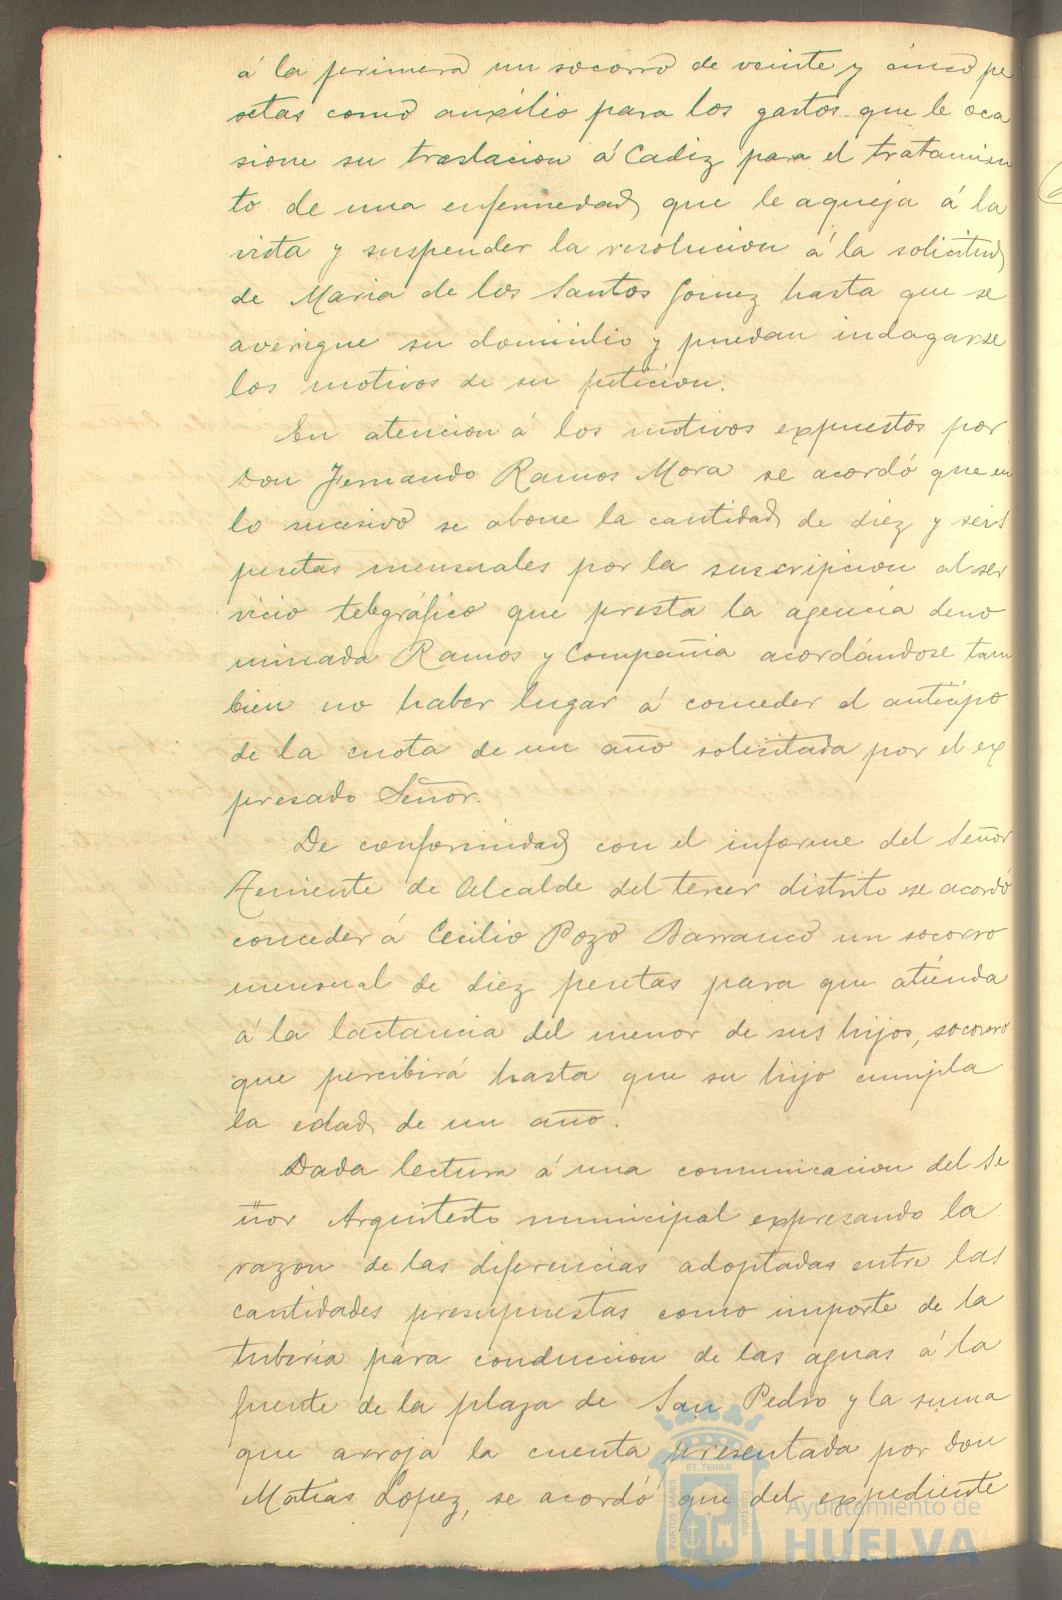 á la primera un socorro de veinte y cinco pe
setas como auxilio para los gastos que le oca
sione su traslacion á Cadiz para el tratamien
to de una enfermedad que le aqueja á la
vista y suspender la resolucion á la solicitud
de Maria de los Santos Gomez hasta que se
averigue su domicilio y puedan indagarse
los motivos de su peticion.
En atencion á los motivos expuestos por
Don Fernando Ramos Mora se acordó que en
lo sucesivo se abone la cantidad de diez y seis
pesetas mensuales por la suscripcion al ser
vicio telegráfico que presta la agencia deno
minada Ramos y Compañia acordándose tam
bien no haber lugar á conceder el anticipo
de la cuota de un año solicitada por el ex
presado Señor.
De conformidad con el informe del Señor
Teniente de Alcalde del tercer distrito se acordó
conceder á Cecilio Pozo Barranco un socorro
mensual de diez pesetas para que atienda
á la lactancia del menor de sus hijos, socorro
que percibirá hasta que su hijo cumpla
la edad de un año.
Dada lectura á una comunicacion del Se
ñor Arquitecto municipal expresando la
razon de las diferencias adoptadas entre las
cantidades presupuestas como importe de la
tuberia para conduccion de las aguas á la
fuente de la plaza de San Pedro y la suma
que arroja la cuenta presentada por Don
Matias Lopez, se acordó que del expediente
PORTUS MARIS
ET TERRÆ
CUSTODIA
Ayuntamiento de
HUELVA